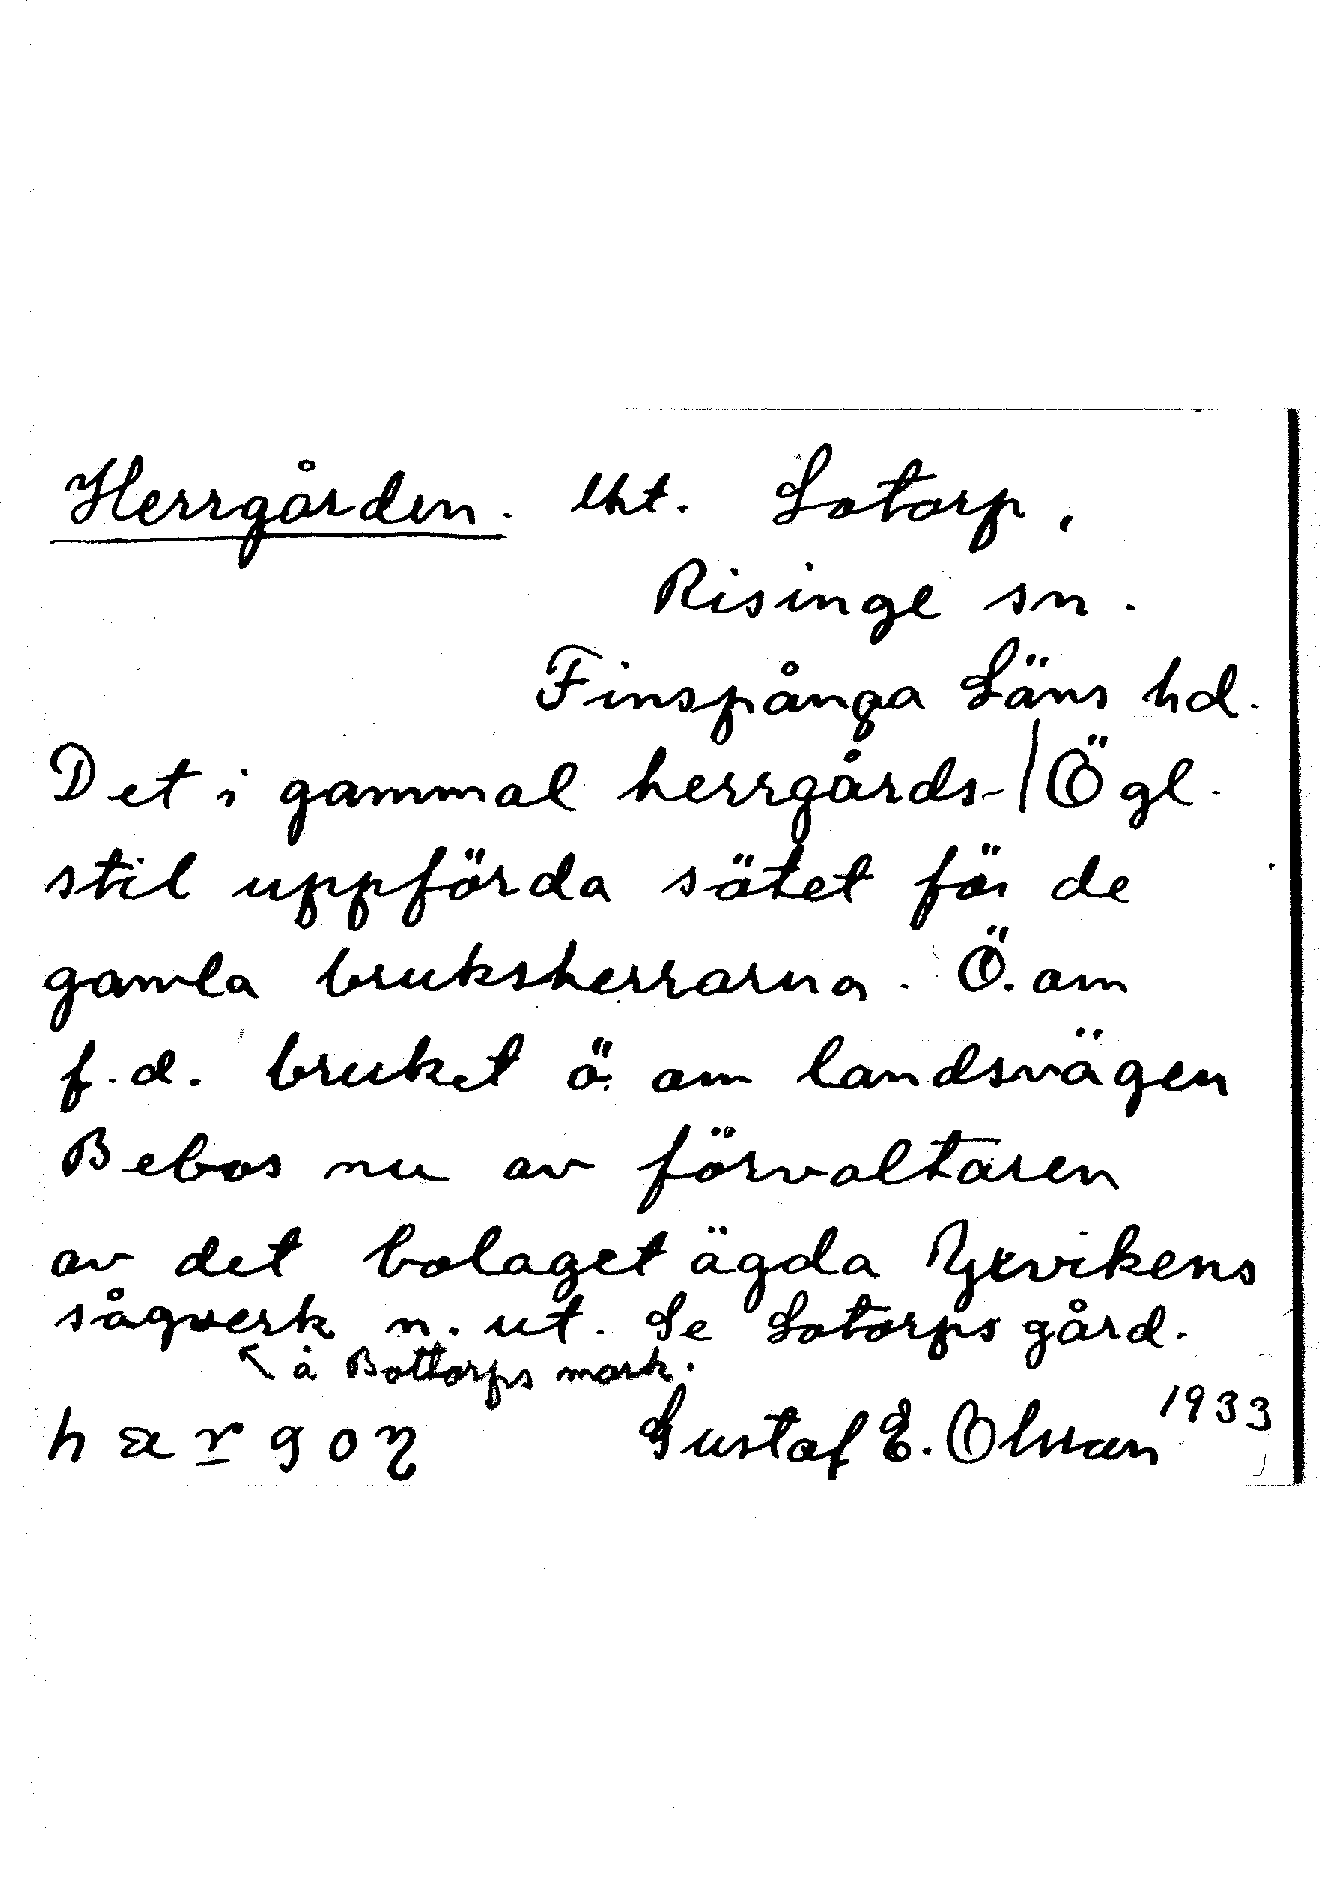 Herrgården. lht. Lotorp,
Risinge sn.
Finspånga Läns hd.
Det i gammal herrgårds-/Ögl.
stil uppförda sätet för de
gamla bruksherrarna. Ö. om
f.d. bruket ö. om landsvägen
Bebos nu av förvaltaren
av det bolaget ägda Yxvikens
sågverk n. ut. Se Lotorps gård.
å Bottorps mark.
Gustaf E. Olsson 1933